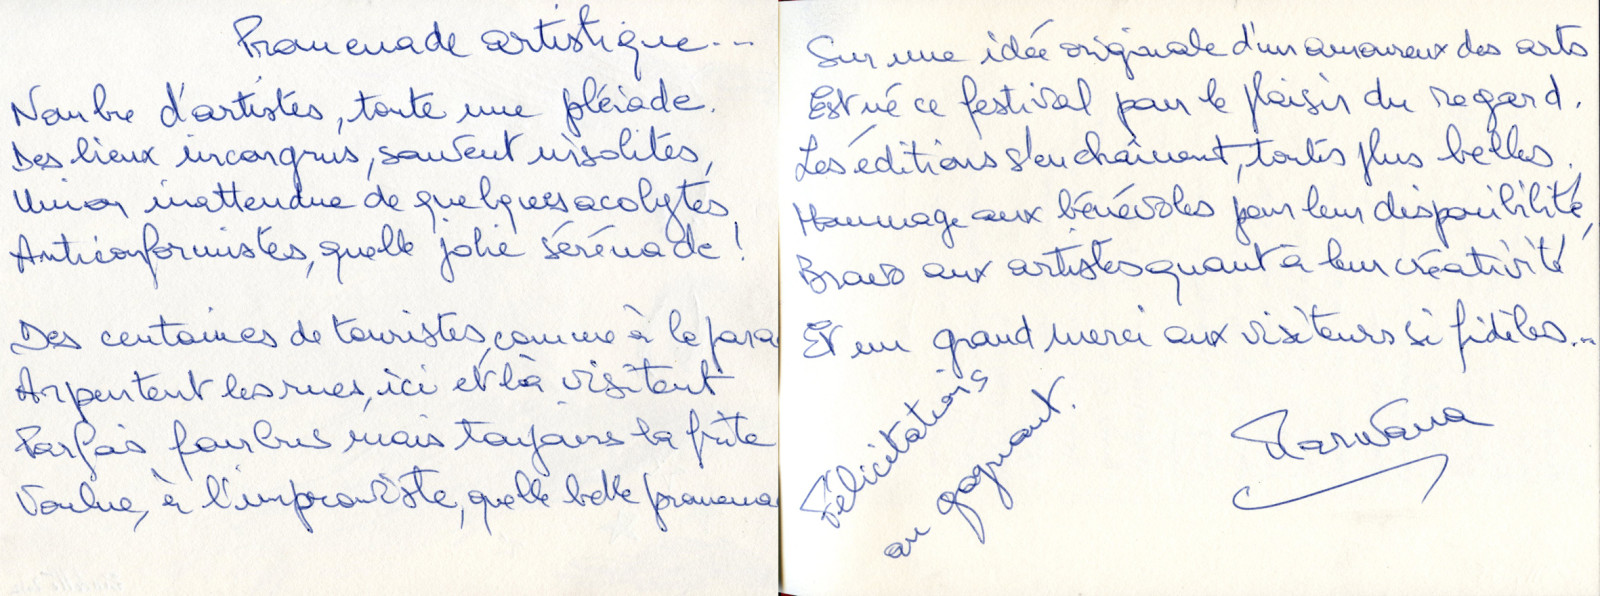 Promenade artistique...
Nombre d'artistes, toute une pléiade.
Des lieux incongrus, souvent insolites,
Union inattendue de quelques acolytes,
Anticonformistes, quelle jolie sérénade !
Des centaines de touristes, comme à la para
Arpentent les rues, ici et là visitent
Parfois fourbus mais toujours la frite
Voulue, à l'improviste, quelle belle promena
Sur une idée originale d'un amoureux des arts
Est né ce festival pour le plaisir du regard.
Les éditions s'enchaînent, toutes plus belles.
Hommage aux bénévoles pour leur disponibilité,
Bravo aux artistes quant à leur créativité
Et un grand merci aux visiteurs si fidèles...
Félicitations
au gagnant.